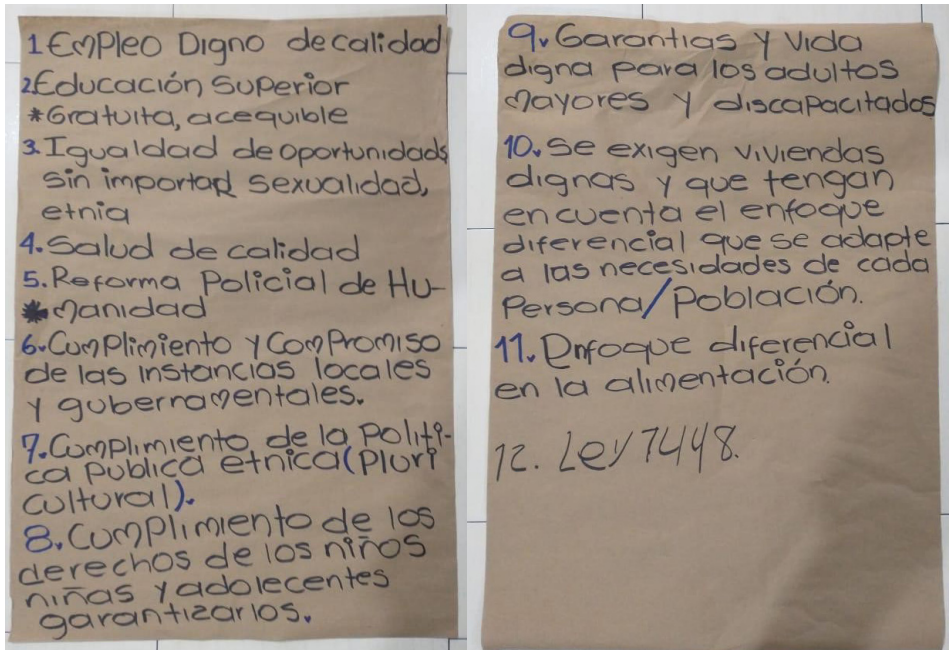 1 Empleo Digno de calidad
2 Educación Superior
*Gratuita, acequible
3. Igualdad de oportunidads
sin importar sexualidad,
etnia
4. Salud de calidad
5. Reforma Policial de Hu-
manidad
6. Cumplimiento y Compromiso
de las instancias locales
y gubernamentales.
7. Cumplimiento de la Políti-
ca publica etnica (Pluri
cultural).
8. Cumplimiento de los
derechos de los niños
niñas y adolecentes
garantizarlos.
9. Garantias y vida
digna para los adultos
mayores y discapacitados
10. Se exigen viviendas
dignas y que tengan
en cuenta el enfoque
diferencial que se adapte
a las necesidades de cada
Persona/Población.
11. Enfoque diferencial
en la alimentación.
12. Ley 1448.